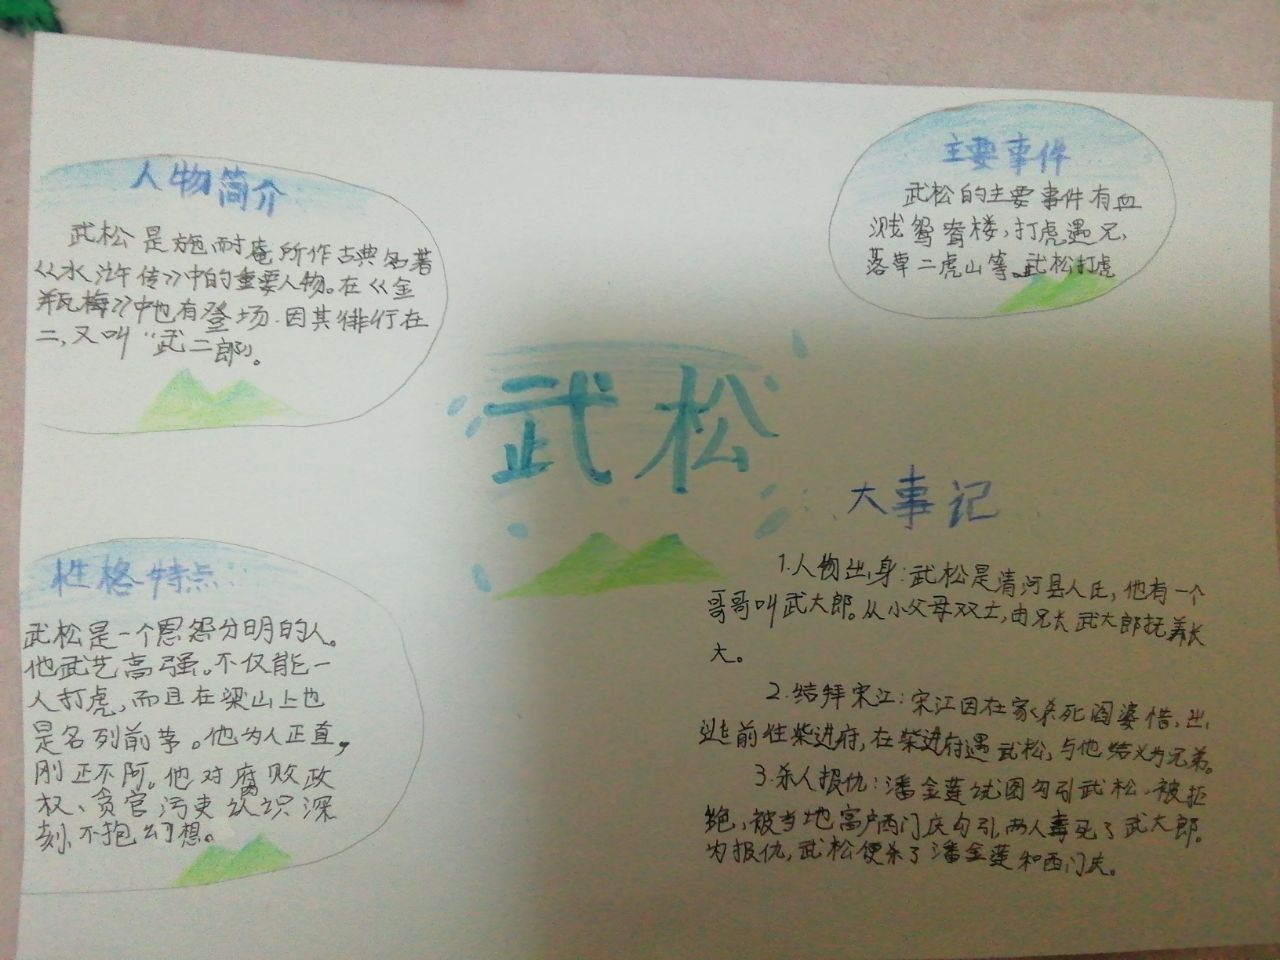 人物简介
武松是施耐庵所作古典名著
《水浒传》中的重要人物。在《金
瓶梅》中也有登场.因其排行在
二,又叫“武二郎”。
主要事件
武松的主要事件有血
溅鸳鸯楼,打虎遇兄,
落草二虎山等。武松打虎
武松
性格特点
武松是一个恩怨分明的人。
他武艺高强。不仅能一
人打虎,而且在梁山上也
是名列前茅。他为人正直,
刚正不阿。他对腐败政
权、贪官污吏认识深
刻,不抱幻想。
大事记
1.人物出身:武松是清河县人氏,他有一个
哥哥叫武大郎。从小父母双亡,由兄长武大郎抚养长
大。
2.结拜宋江:宋江因在家杀死阎婆惜,出
逃前往柴进府,在柴进府遇武松,与他结义为兄弟。
3.杀人报仇:潘金莲试图勾引武松,被拒
绝,被当地富户西门庆勾引,两人毒死了武大郎。
为报仇,武松便杀了潘金莲和西门庆。